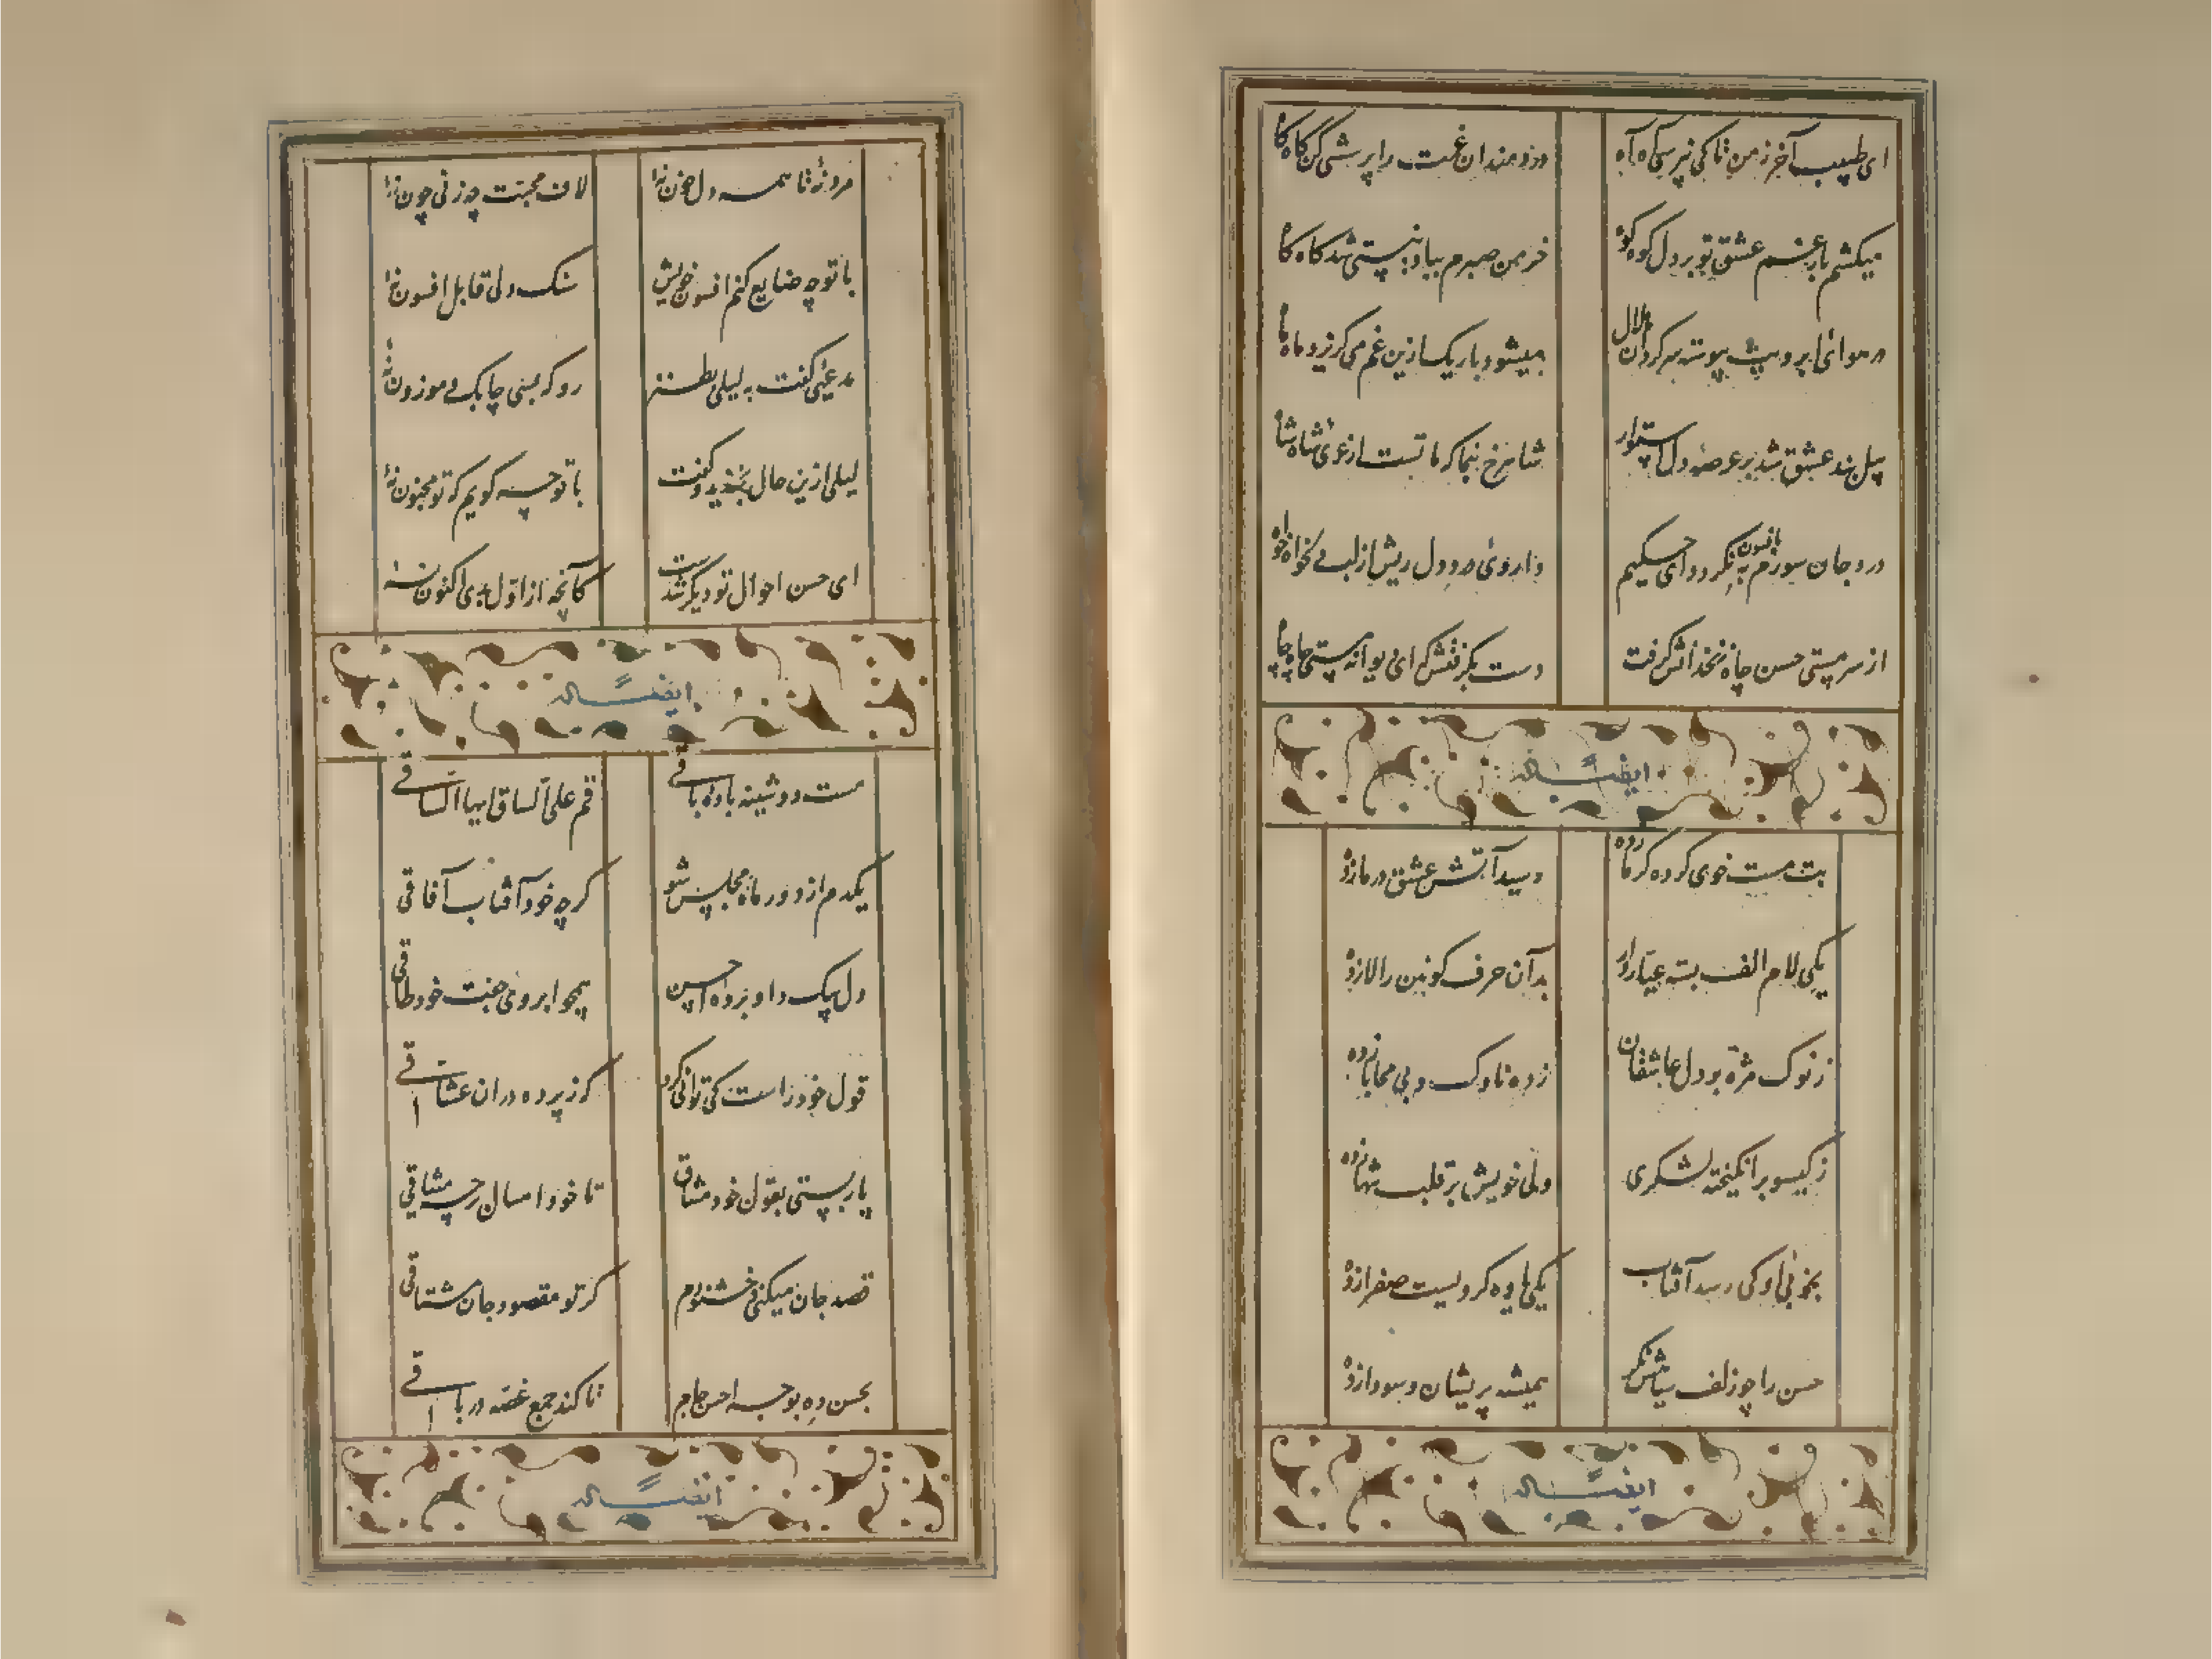 ای طبیب آخر ز من تا کی نپرسی آه آه
دردمندان غمت را پرسشی کن گاه گاه
میکشم بار غم عشق تو بر دل کوه کوه
خرمن صبرم بباد نیستی شد کاه کاه
در هوای ابرویت پیوسته سرگردان هلال
میشود باریک ازین غم می گریزد ماه ماه
پیل بند عشق شد بر عرصه دل استوار
شاهرخ بنما که مات تست از غری شاه شاه
درد جان سوزم به افسون به نگردد ای حکیم
داروی درد دل ریش از لب وی خواه خواه
از سر مستی حسن چاه زنخدانش گرفت
دست بگرفتش که ای دیوانه مستی چاه چاه
ایضاً له
بت مست خوی کرده گرما زده
رسید آتش عشق در ما زده
یکی لام الف بسته عیاروار
بدآن حرف کونین را لا زده
ز نوک مژه بر دل عاشقان
زده ناوک و بی محابا زده
ز گیسو برانگیخته لشکری
ولی خویش بر قلب تنها زده
بخوبی او کی رسد آفتاب
یکی یاوه گردیست صفرا زده
حسن را چو زلف سیاهش نگر
همیشه پریشان و سودا زده
ایضاً له
مرد نهٔ تا همه دل خون نهٔ
لاف محبت چه زنی چون نهٔ
با تو چه ضایع کنم افسون خویش
سنگ دلی قابل افسون نهٔ
مدعیی گفت به لیلی بطنز
رو که بسی چابک و موزون نهٔ
لیلی ازین حال بخندید و گفت
با تو چه گویم که تو مجنون نهٔ
ای حسن احوال تو دیگر شدست
کآنچه از اول بدی اکنون نهٔ
ایضاً له
مست دوشینه باده باقی
قم علی الساق ایها الساقی
یکدم از دور ماه مجلس شو
گرچه خود آفتاب آفاقی
دل یکی داد و برد احسن
همچو ابروی جفت خود طاقی
قول خود راست کی توانی کرد
کز پرده دران عشاقی
پار بستی بقول خود میثاق
تا خود امسال بر چه میثاقی
قصد جان میکنی و خشنودم
کز تو مقصود جان مشتاقی
بحسن ده بوجه احسن جام
تا کند جمع غصه در باقی
ایضاً له